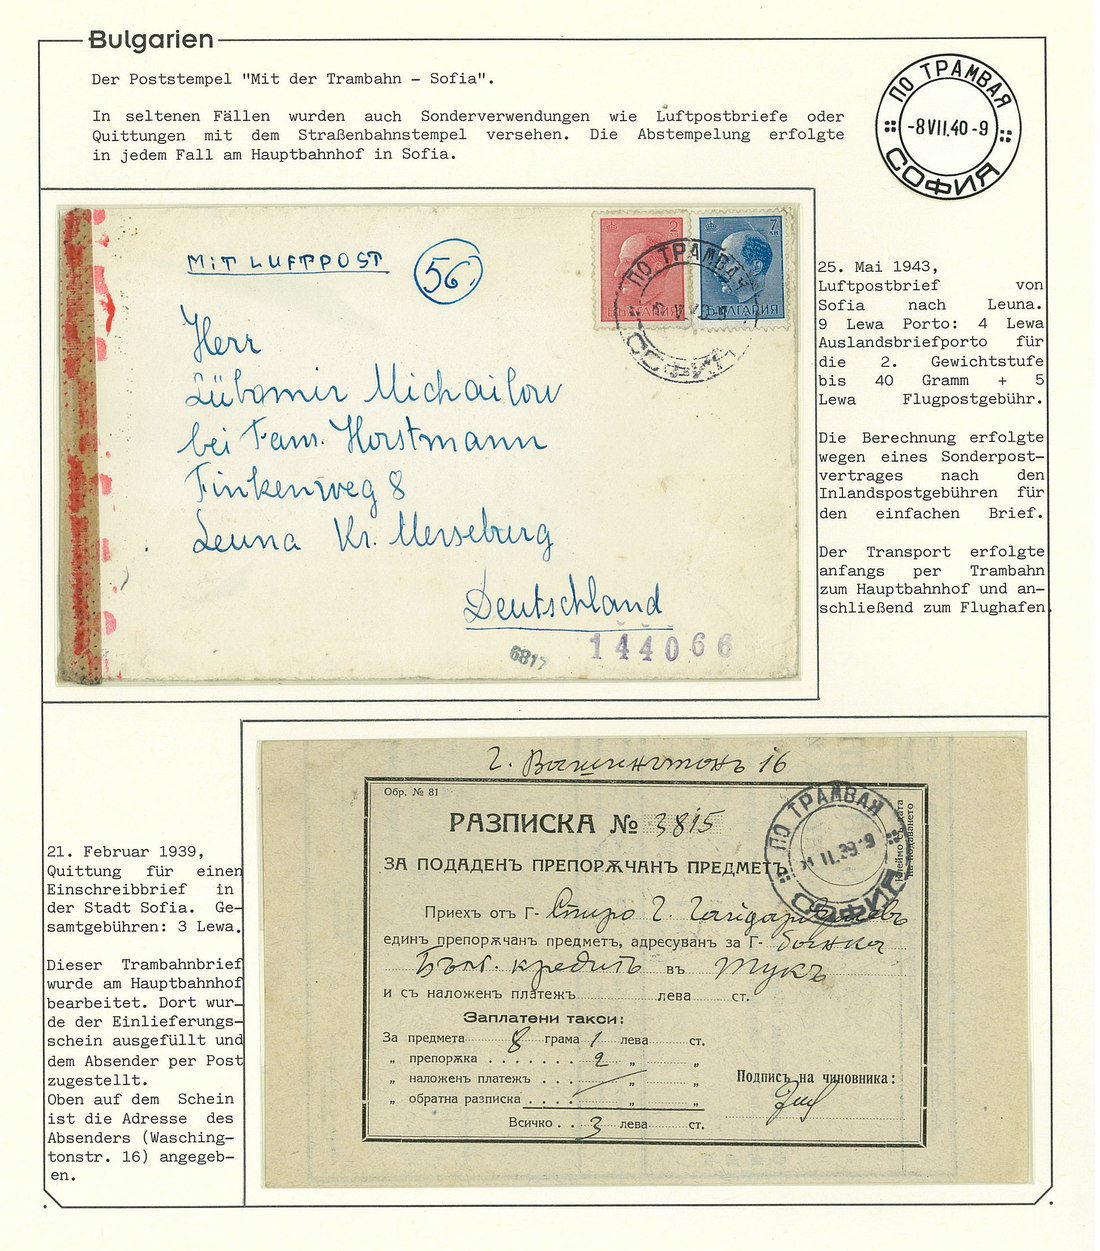 Bulgarien
Der Poststempel "Mit der Trambahn - Sofia".
In seltenen Fällen wurden auch Sonderverwendungen wie Luftpostbriefe oder
Quittungen mit dem Straßenbahnstempel versehen. Die Abstempelung erfolgte
in jedem Fall am Hauptbahnhof in Sofia.
ПО ТРАМВАЯ
-8 VII. 40 -9
СОФИЯ
MIT LUFTPOST
56
2
ЛВ
7
ЛВ
БЪЛГАРИЯ
БЪЛГАРИЯ
ПО ТРАМВАЯ
СОФИЯ
Herr
Lübomir Michailow
bei Fam. Horstmann
Finkenweg 8
Leuna Kr. Merseburg
Deutschland
6817
144066
25. Mai 1943,
Luftpostbrief von
Sofia nach Leuna.
9 Lewa Porto: 4 Lewa
Auslandsbriefporto für
die 2. Gewichtstufe
bis 40 Gramm + 5
Lewa Flugpostgebühr.
Die Berechnung erfolgte
wegen eines Sonderpost-
vertrages nach den
Inlandspostgebühren für
den einfachen Brief.
Der Transport erfolgte
anfangs per Trambahn
zum Hauptbahnhof und an-
schließend zum Flughafen.
21. Februar 1939,
Quittung für einen
Einschreibbrief in
der Stadt Sofia. Ge-
samtgebühren: 3 Lewa.
Dieser Trambahnbrief
wurde am Hauptbahnhof
bearbeitet. Dort wur-
de der Einlieferungs-
schein ausgefüllt und
dem Absender per Post
zugestellt.
Oben auf dem Schein
ist die Adresse des
Absenders (Wasching-
tonstr. 16) angegeb-
en.
г. Вашингтонъ 16
Обр. № 81
РАЗПИСКА № 3815
ЗА ПОДАДЕНЪ ПРЕПОРѪЧАНЪ ПРЕДМЕТЪ
ПО ТРАМВАЯ
II. 39 -9
СОФИЯ
Клеймо съ дата
на подаването
Приехъ отъ Г- Спиро Г.
единъ препорѫчанъ предметъ, адресуванъ за Г- банка
Бълг. кредитъ въ тукъ
и съ наложенъ платежъ лева ст.
Заплатени такси:
За предмета 8 грама 1 лева ст.
„ препорѫка 2 „ „
„ наложенъ платежъ „ „
„ обратна разписка „ „
Всичко 3 лева ст.
Подписъ на чиновника: